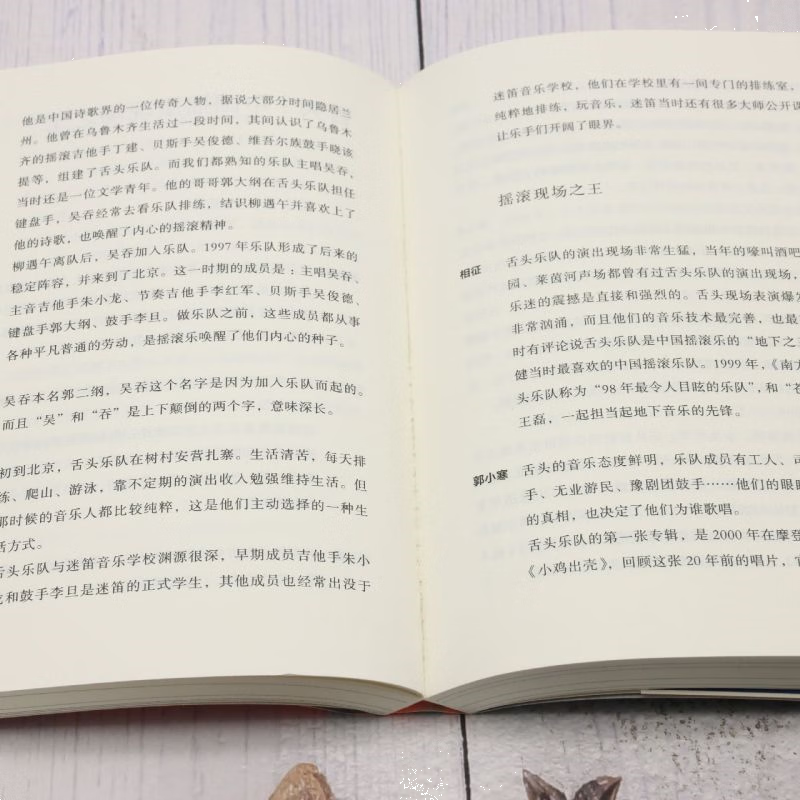 他是中国诗歌界的一位传奇人物，据说大部分时间隐居兰
州。他曾在乌鲁木齐生活过一段时间，其间认识了乌鲁木
齐的摇滚吉他手丁建、贝斯手吴俊德、维吾尔族鼓手晓该
提等，组建了舌头乐队。而我们都熟知的乐队主唱吴吞，
当时还是一位文学青年。他的哥哥郭大纲在舌头乐队担任
键盘手，吴吞经常去看乐队排练，结识柳遇午并喜欢上了
他的诗歌，也唤醒了内心的摇滚精神。
柳遇午离队后，吴吞加入乐队。1997 年乐队形成了后来的
稳定阵容，并来到了北京。这一时期的成员是：主唱吴吞、
主音吉他手朱小龙、节奏吉他手李红军、贝斯手吴俊德、
键盘手郭大纲、鼓手李旦。做乐队之前，这些成员都从事
各种平凡普通的劳动，是摇滚乐唤醒了他们内心的种子。
吴吞本名郭二纲，吴吞这个名字是因为加入乐队而起的。
而且“吴”和“吞”是上下颠倒的两个字，意味深长。
初到北京，舌头乐队在树村安营扎寨。生活清苦，每天排
练、爬山、游泳，靠不定期的演出收入勉强维持生活。但
那时候的音乐人都比较纯粹，这是他们主动选择的一种生
活方式。
舌头乐队与迷笛音乐学校渊源很深，早期成员吉他手朱小
龙和鼓手李旦是迷笛的正式学生，其他成员也经常出没于
迷笛音乐学校，他们在学校里有一间专门的排练室，
纯粹地排练，玩音乐，迷笛当时还有很多大师公开课
让乐手们开阔了眼界。
摇滚现场之王
相征 舌头乐队的演出现场非常生猛，当年的嚎叫酒吧
园、莱茵河声场都曾有过舌头乐队的演出现场，
乐迷的震撼是直接和强烈的。舌头现场表演爆发
非常汹涌，而且他们的音乐技术最完善，也最
时有评论说舌头乐队是中国摇滚乐的“地下之王
健当时最喜欢的中国摇滚乐队。1999 年，《南方
头乐队称为“98 年最令人目眩的乐队”，和“苍
王磊，一起担当起地下音乐的先锋。
郭小寒 舌头的音乐态度鲜明，乐队成员有工人、司
手、无业游民、豫剧团鼓手……他们的眼睛
的真相，也决定了他们为谁歌唱。
舌头乐队的第一张专辑，是 2000 年在摩登
《小鸡出壳》，回顾这张 20 年前的唱片，官